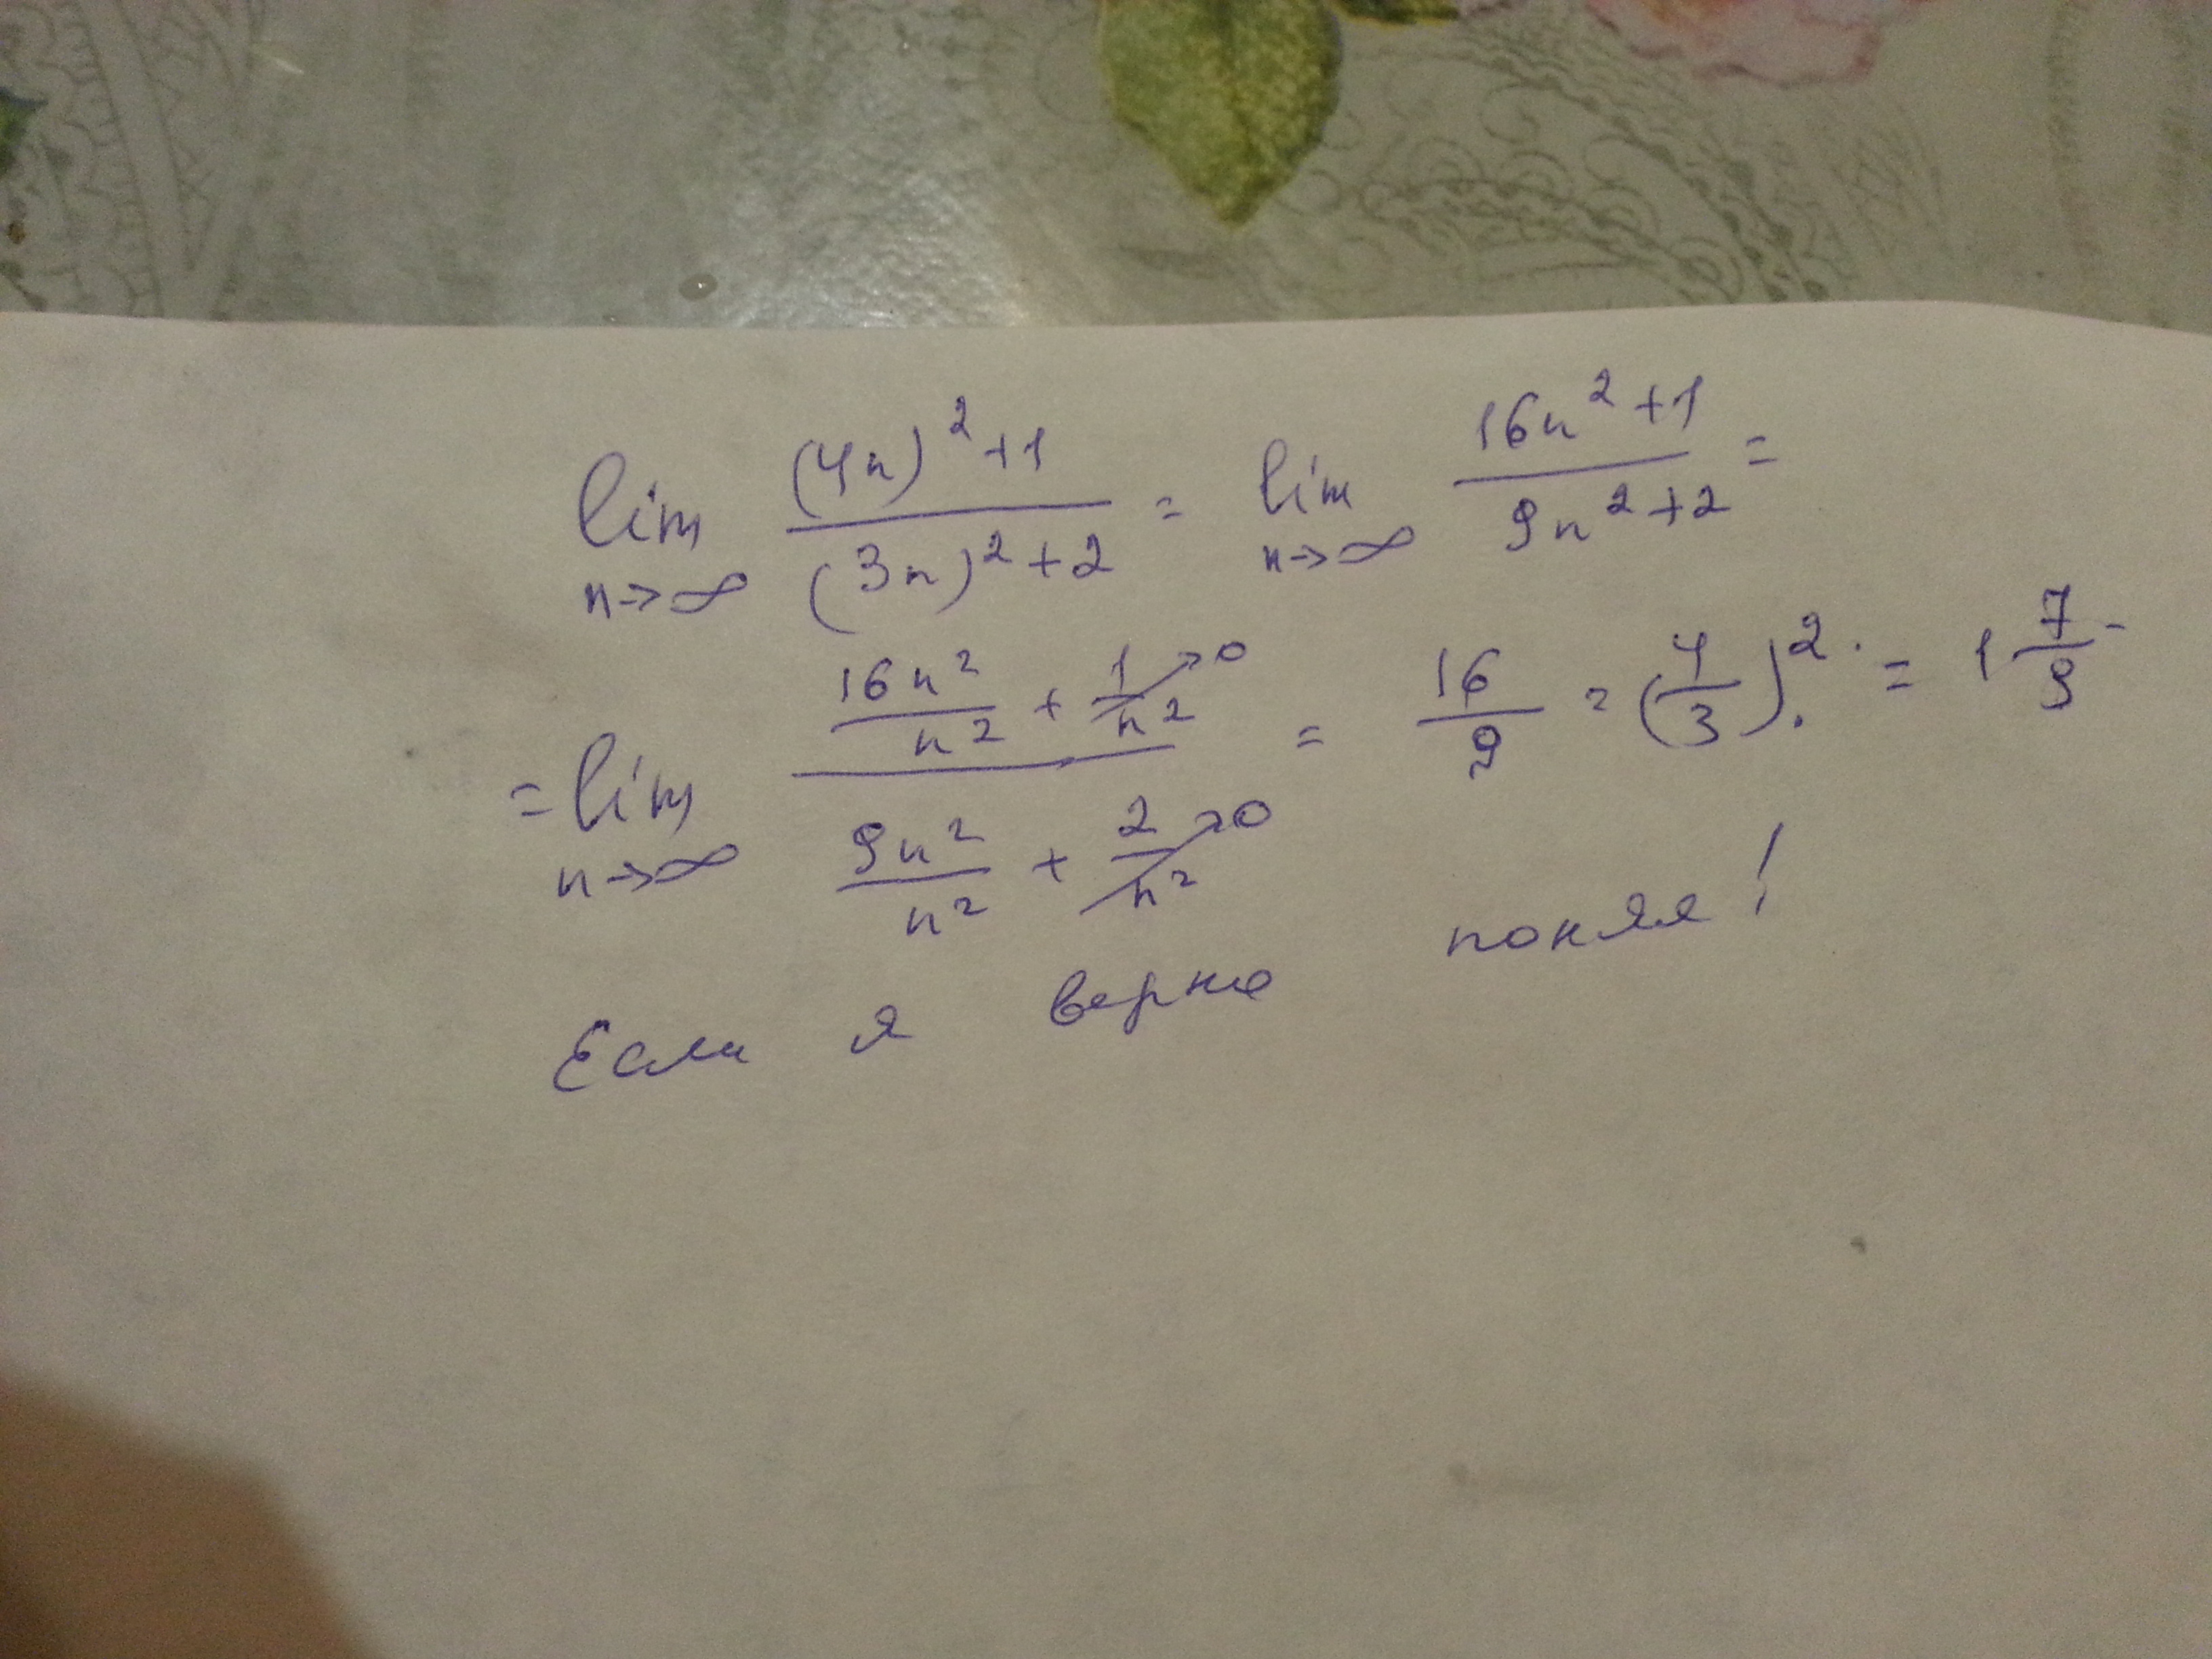 lim n→∞ ((4n)² + 1) / ((3n)² + 2) = lim n→∞ (16n² + 1) / (9n² + 2) =
= lim n→∞ (16n²/n² + 1/n² →0) / (9n²/n² + 2/n² →0) = 16/9 = (4/3)². = 1 7/9
Если я верно понял!